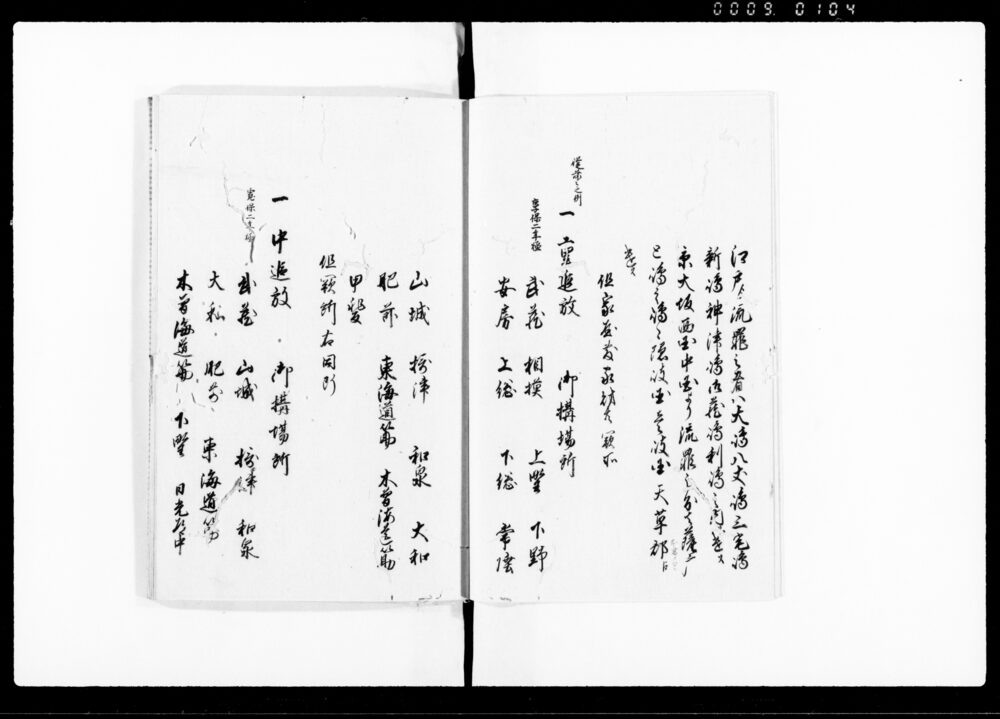 0009.0104
江戸ゟ流罪之者ハ大嶋八丈嶋三宅嶋
新嶋神津嶋御蔵嶋利嶋之内江遣ス
京大坂西国中国ゟ流罪之分ハ薩摩
五嶋之嶋々隠岐国壱岐国天草郡江
遣ス
但家屋敷家財共闕所
従前之例
一 重追放 御構場所
享保二年極
武蔵 相模 上野 下野
安房 上総 下総 常陸
山城 摂津 和泉 大和
肥前 東海道筋 木曽海道筋
甲斐
但闕所右同断
一 中追放 御構場所
寛保二年極
武蔵 山城 摂津 和泉
大和 肥前 東海道筋
木曽海道筋 下野 日光道中